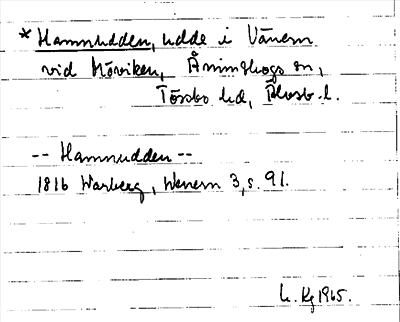 *Hamnudden, udde i Vänern
vid Höviken, Ånimskogs sn,
Tössbo hd, Älvsb. l.
-- Hamnudden --
1816 Warberg, Wenern 3, s. 91.
L. Kg 1965.